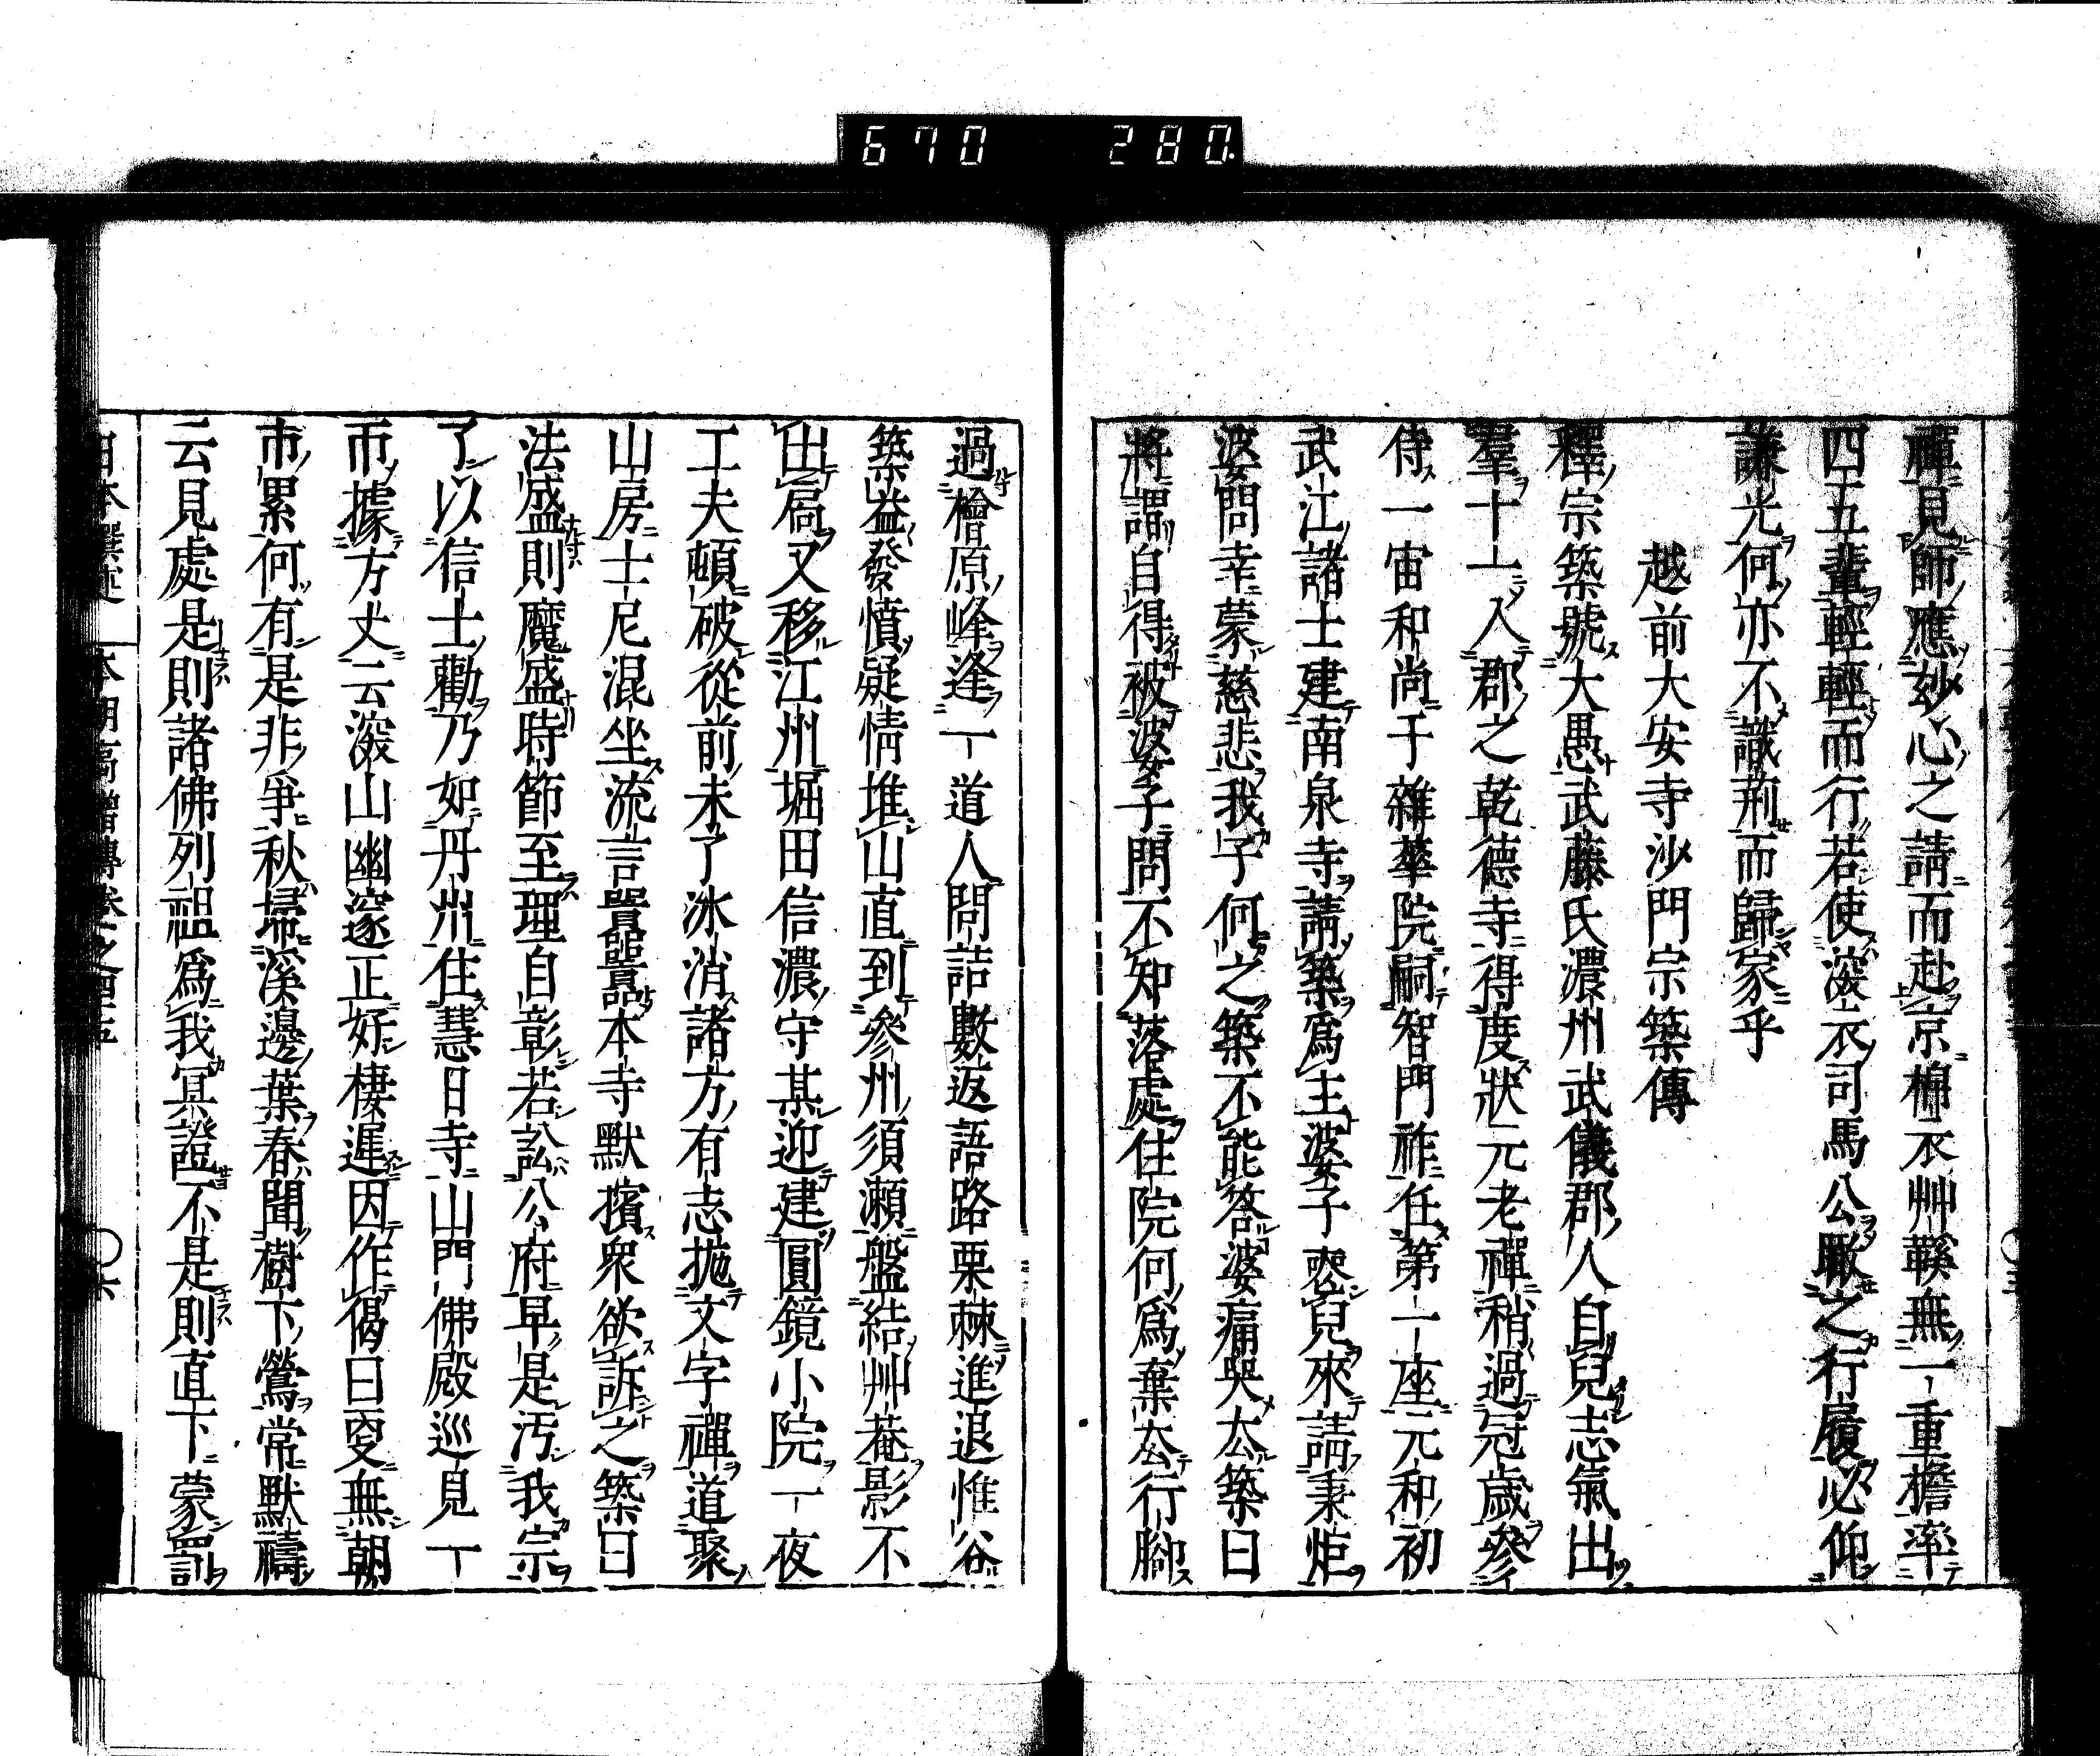 670 280
禪見師應妙心之請而赴京棉衣艸鞋無一重擔率
四五輩輕輕而行若使溫衣司馬公瞰之行履必仰
謙光何亦不識荊而歸家乎
越前大安寺沙門宗築傳
釋宗築號大愚武藤氏濃州武儀郡人自兒志氣出
羣十一入郡之乾德寺得度狀元老禪稍過冠歲參
侍一宙和尚于雜華院嗣智門祚任第一座元和初
武江諸士建南泉寺請築為主婆子喪兒來請秉炬
婆問幸蒙慈悲我子何之築不能答婆痛哭厺築曰
將謂自得被婆子問不知落處住院何為棄厺行腳
過檜原峰逢一道人問詰數返語路栗棘進退惟谷
築益發憤疑情堆山直到參州須瀨盤結艸菴影不
出扃又移江州堀田信濃守某迎建圓鏡小院一夜
工夫頓破從前未了冰消諸方有志拋文字禪道聚
山房士尼混坐流言囂囂本寺默擯衆欲訴之築曰
法盛則魔盛時節至理自彰若訟公府早是汚我宗
了以信士勸乃如丹州住慧日寺山門佛殿巡見一
帀據方丈云深山幽邃正好棲遲因作偈曰叟無朝
市累何有是非爭秋埽溪邊葉春聞樹下鶯常默禱
云見處是則諸佛列祖為我冥證不是則直下蒙罰
日本撰述 本朝高僧傳卷之四五 〇六